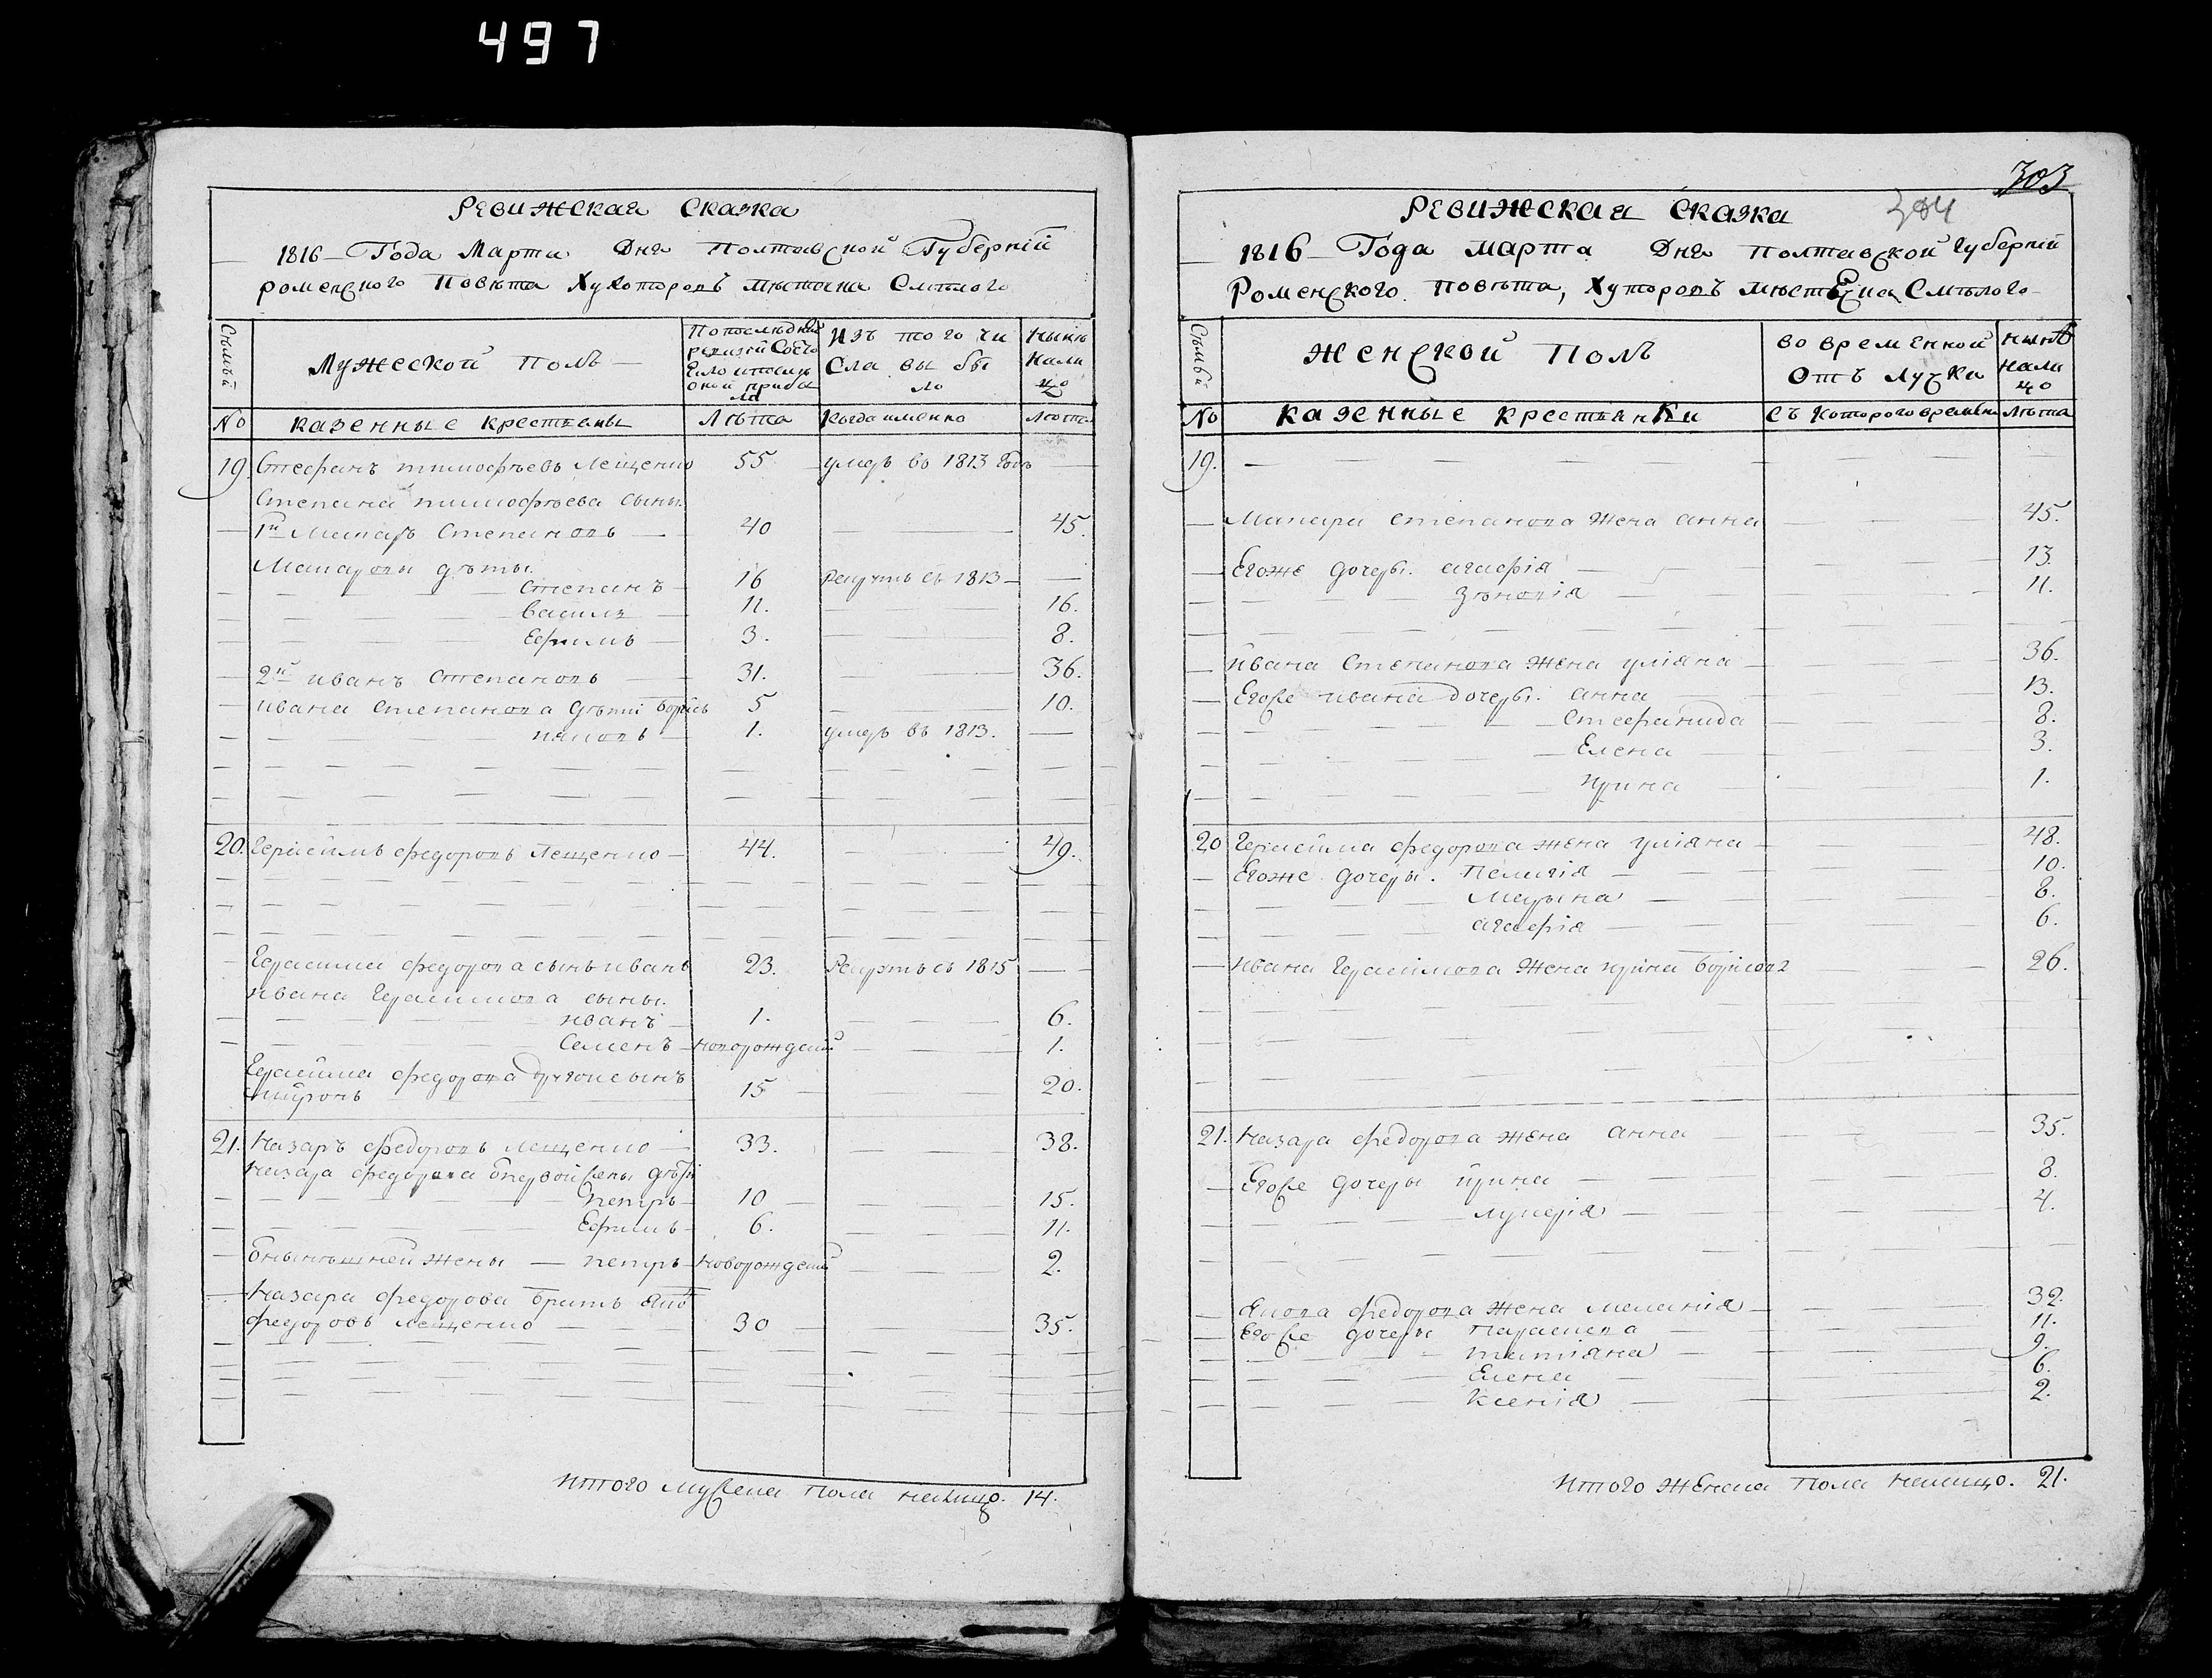 497
Ревижская Сказка
1816 Года Марта Дня Полтавской Губерніи
роменского Повѣта Хуторовъ мѣстечка Смѣлого
Семьи
Мужеской Полъ
По послѣдней ревизіи Состо
Изъ того чи Сла вы бы ло
нынѣ нали цо
№ казенные крестьяны Лѣта Когда именно Лѣта
19. Стефанъ тимофѣевъ Лещенко 55 умеръ въ 1813 Годъ
Степана тимофѣева сыны.
1й Макаръ Степановъ 40 45.
Макаровы дѣты.
Степанъ 16 Рекрутъ съ 1813
василь 11. 16.
Ефимъ 3. 8.
2й иванъ Степановъ 31. 36.
ивана Степанова дѣти Борисъ 5 10.
яковъ 1. умеръ въ 1813.
20. Герасимъ федоровъ Лещенко 44. 49.
Герасима федорова сынъ иванъ 23. Рекрутъ съ 1815
ивана Герасимова сыны.
иванъ 1. 6.
Семенъ новорожден 1.
Герасима федорова другой сынъ
миронъ 15 20.
21. Назаръ федоровъ лещенко 33. 38.
Назара федорова первой жены дѣти
петръ 10 15.
Ефимъ 6. 11.
нынѣшней жены петръ новорожден 2.
Назара федорова братъ яковъ
федоровъ лещенко 30 35.
Итого мужеска пола налицо. 14.
303
304
Ревижская Сказка
1816 Года марта Дня Полтавской Губерніи
Роменского Повѣта, Хуторовъ мѣстечка Смѣлого
Семьи
Женской Полъ
во временной отъ лучки
нынѣ нали цо
№ казенные крестьянки съ которого времены Лѣта
19.
Макара степанова жена анна 45.
Егоже дочеры. агафія 13.
Зѣновія 11.
ивана Степанова жена уліяна 36.
Егоже ивана дочеры. анна 13.
Стефанида 8.
Елена 3.
ирина 1.
20 Герасима федорова жена уліяна 48.
Егоже дочеры. Пелагія 10.
Марына 8.
агафія 6.
ивана Герасимова жена ирина борисова 26.
21. Назара федорова жена анна 35.
Егоже дочеры ирина 8.
лукерія 4.
якова федорова жена меланія 32.
Егоже дочеры параскева 11.
татіяна 9.
Елена 6.
Ксенія 2.
Итого женска пола налицо. 21.